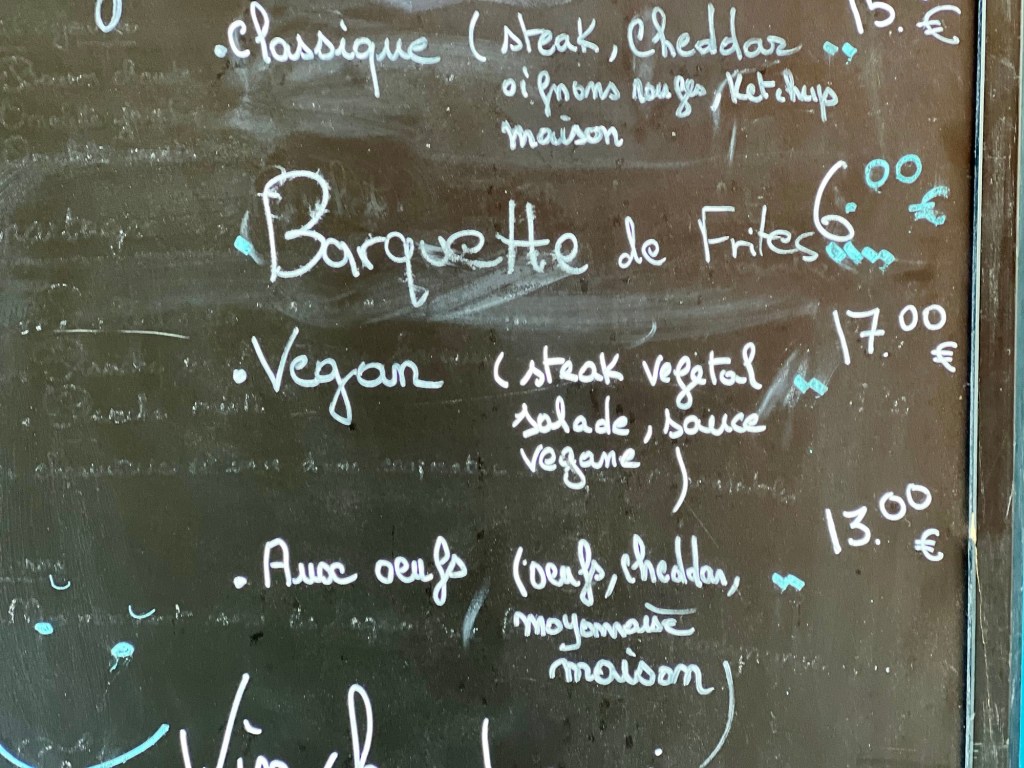 .Classique (steak, Cheddar 15. €
oignons rouges, Ketchup
maison
Barquette de Frites 6.00 €
.Vegan (steak végétal 17.00 €
salade, sauce
vegane)
.Aux oeufs (oeufs, cheddar, 13.00 €
mayonnaise
maison)